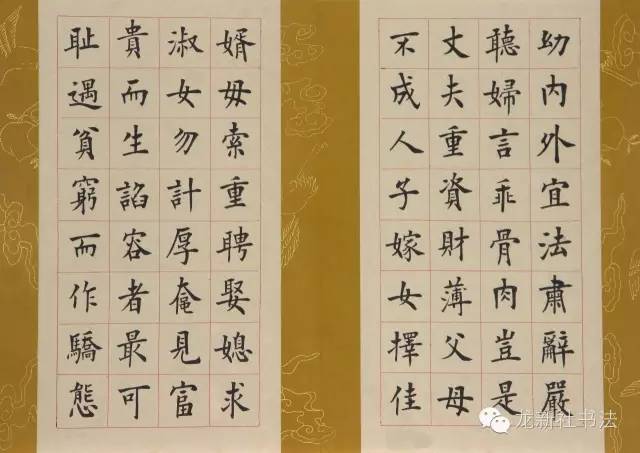 幼內外宜法肅辭嚴
聽婦言乖骨肉豈是
丈夫重資財薄父母
不成人子嫁女擇佳
婿毋索重聘娶媳求
淑女勿計厚奩見富
貴而生諂容者最可
耻遇貧窮而作驕態
龙新社书法